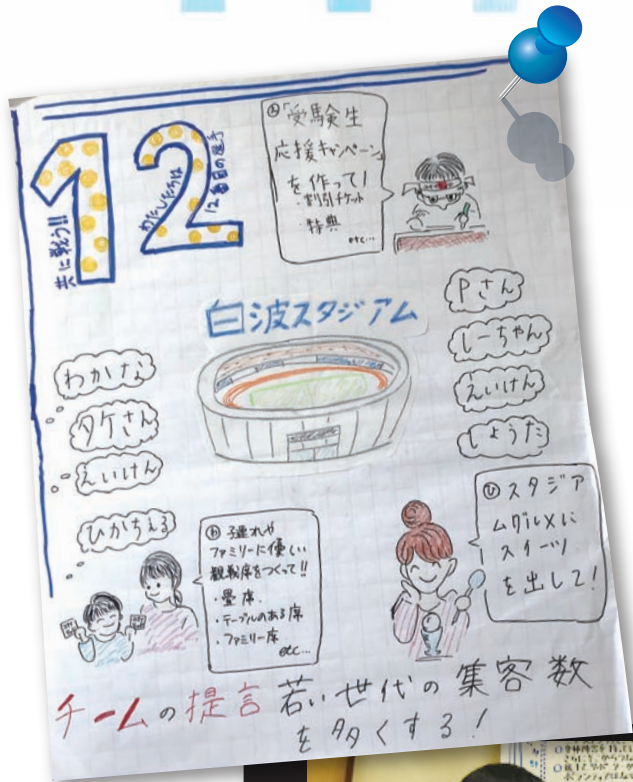 12
共に戦う!!
わたしたちは
12番目の選手
「受験生
応援キャンペーン」
を作って!
・割引チケット
・特典
etc...
白波スタジアム
Pさん
しーちゃん
えいけん
しょうた
わかな
タケさん
えいけん
ひかちぇる
子連れや
ファミリーに優しい
観戦席をつくって!!
・畳席
・テーブルのある席
・ファミリー席
etc...
㋪スタジア
ムグルメに
スイーツ
を出して!
チームの提言 若い世代の集客数
を多くする!